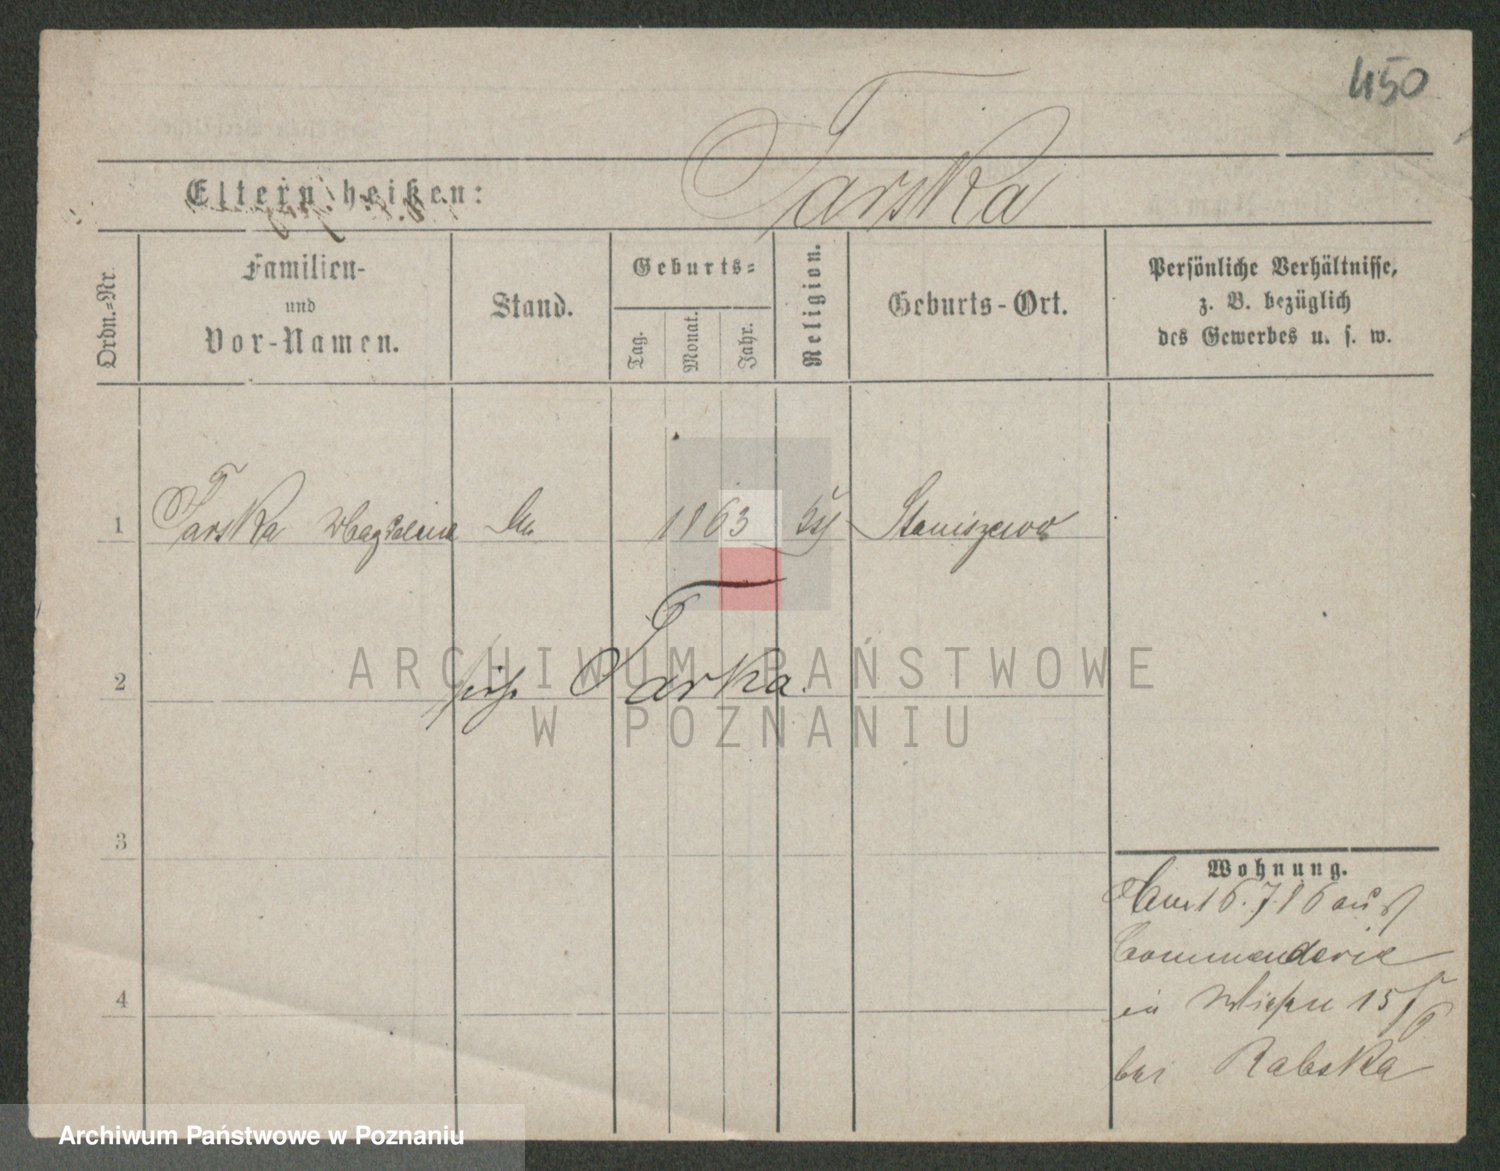 450
Tarska
Eltern heißen:
Ordn.-Nr.
Familien-
und
Vor-Namen.
Stand.
Geburts-
Tag.
Monat.
Jahr.
Religion.
Geburts-Ort.
Persönliche Verhältnisse,
z. B. bezüglich
des Gewerbes u. s. w.
1 Tarska Magdalena 1863 Staniszewo
siehe Tarka.
2
3
4
Wohnung.
16.7.86 aus
Commenderie
in 15/6
bei Rabska
ARCHIWUM PAŃSTWOWE
W POZNANIU
Archiwum Państwowe w Poznaniu